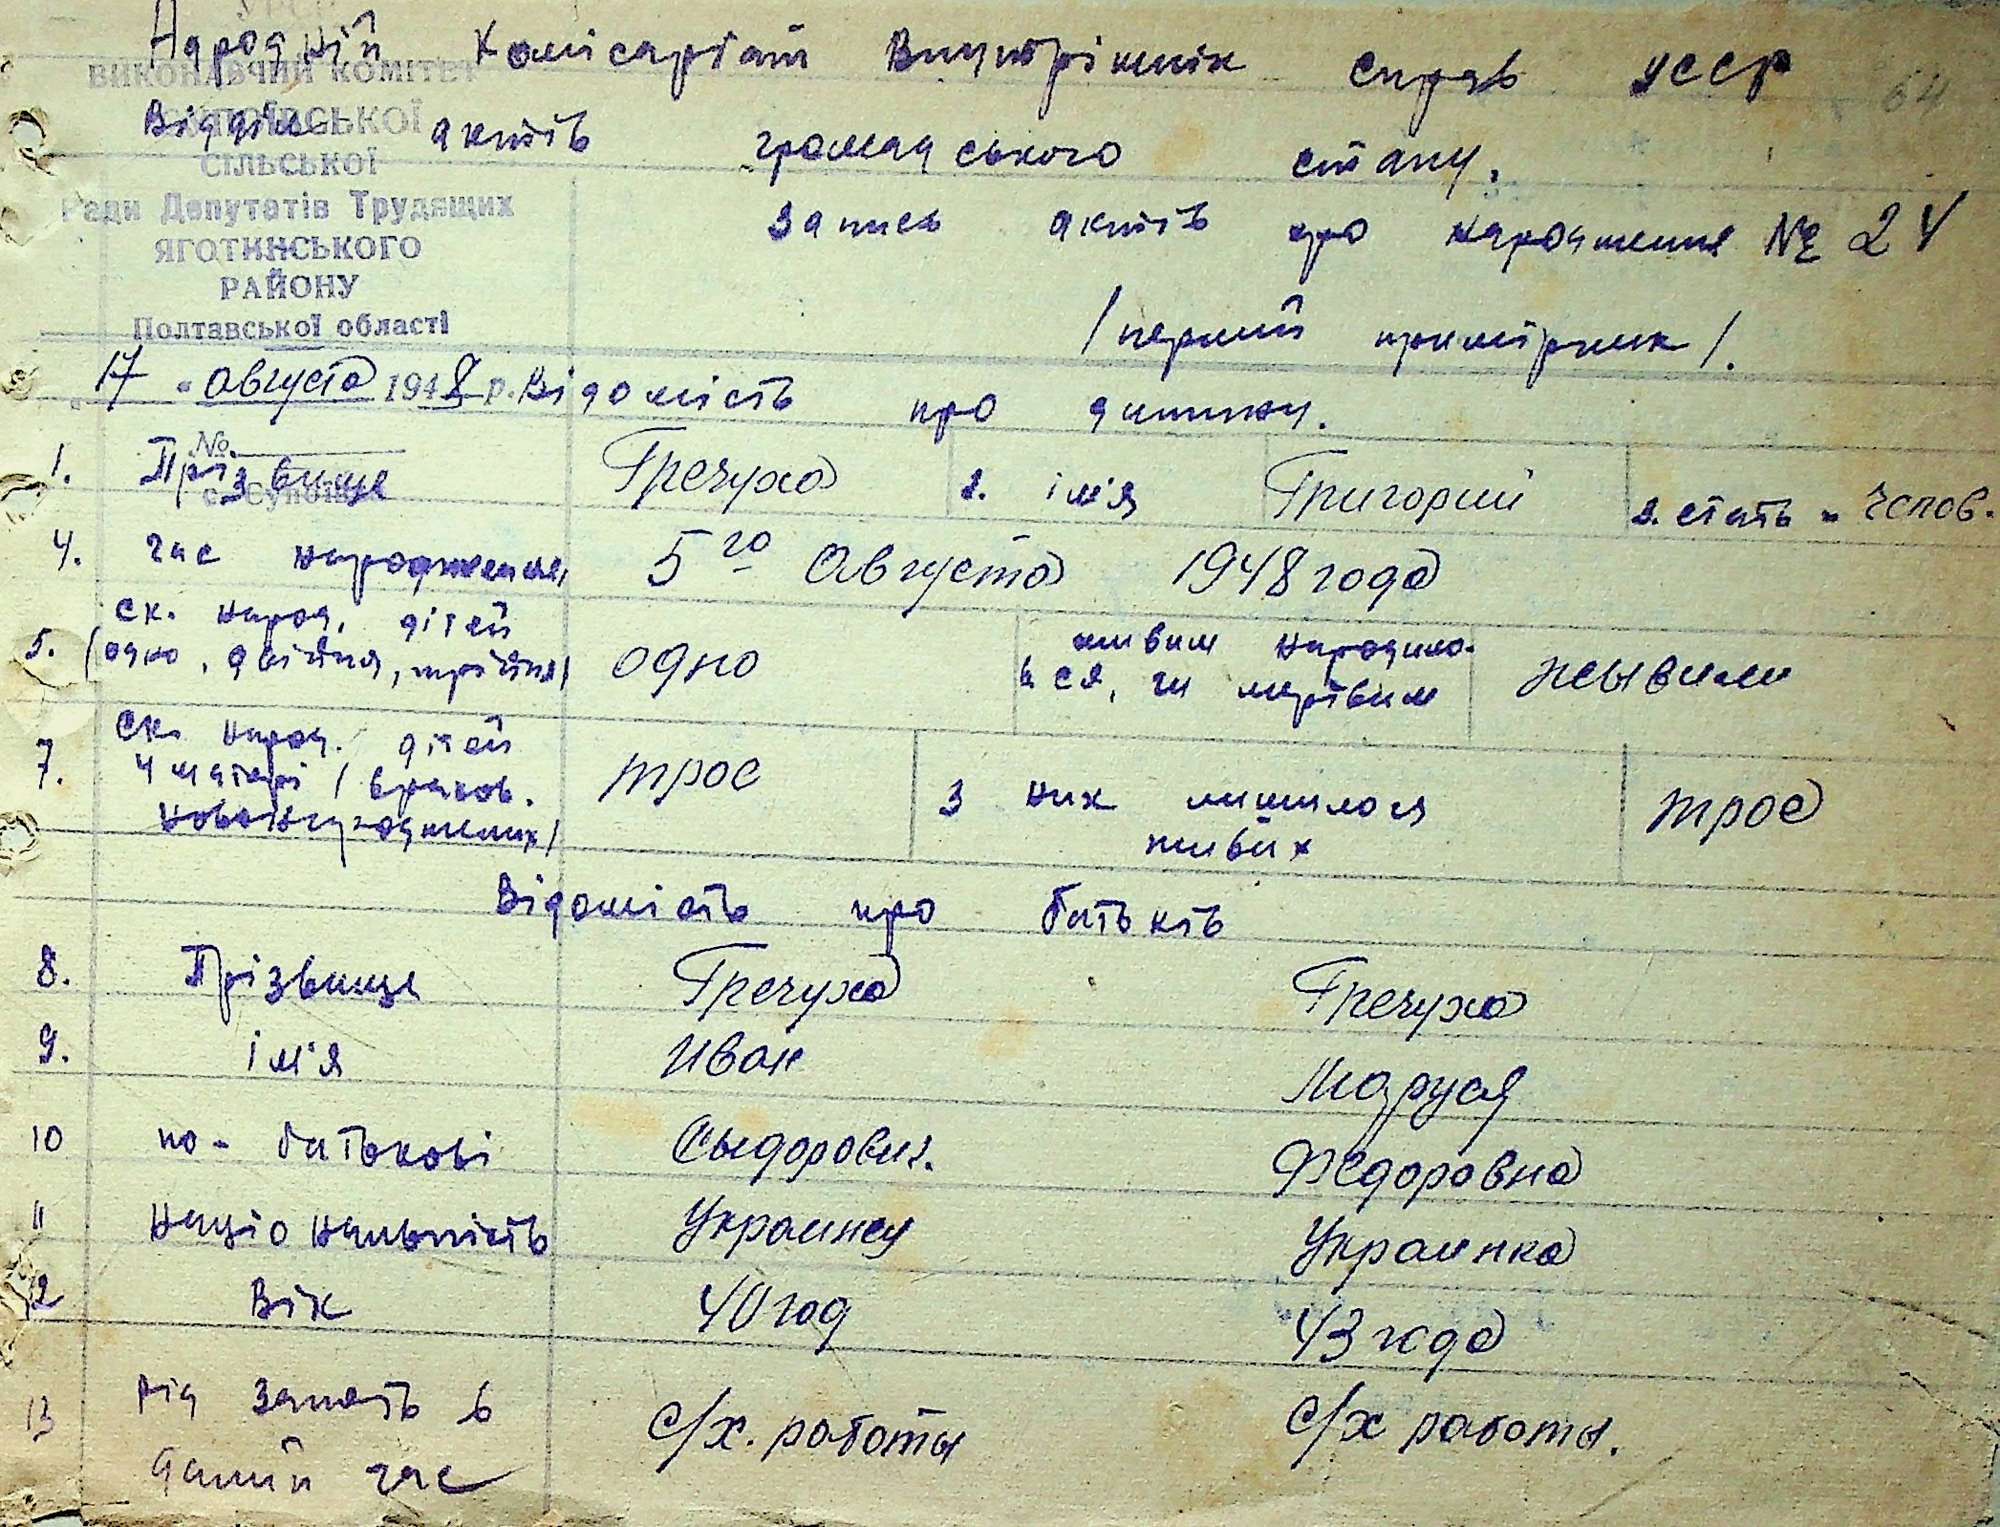 УРСР
Народній Комісаріат Внутрішніх справ УССР
64
ВИКОНАВЧИЙ КОМІТЕТ
СУПОЇВСЬКОЇ
Відділ актів громадського стану.
СІЛЬСЬКОЇ
Ради Депутатів Трудящих
Запись актів про народження № 24
ЯГОТИНСЬКОГО
РАЙОНУ
/перший примірник/.
Полтавської області
"17" августа 1948 р. Відомість про дитину.
№
с. Супоївка
1. Прізвище Гречуха 2. ім'я Григорий 3. стать - челов.
4. час народження 5го августа 1948 года
5. ск. народ. дітей (одно, двійня, трійня) одно живим народило-ся, чи мертвим жывими
7. ск. народ. дітей у матері / врахов. новонароджених/ трое з них лишилося живих трое
Відомість про батьків
8. Прізвище Гречуха Гречуха
9. ім'я Иван Маруся
10 по-батькові Сыдорович. Федоровна
11 національність Украинец Украинка
12 Вік 40 год 43 года
13 рід занять в даний час с/х. работы с/х работы.